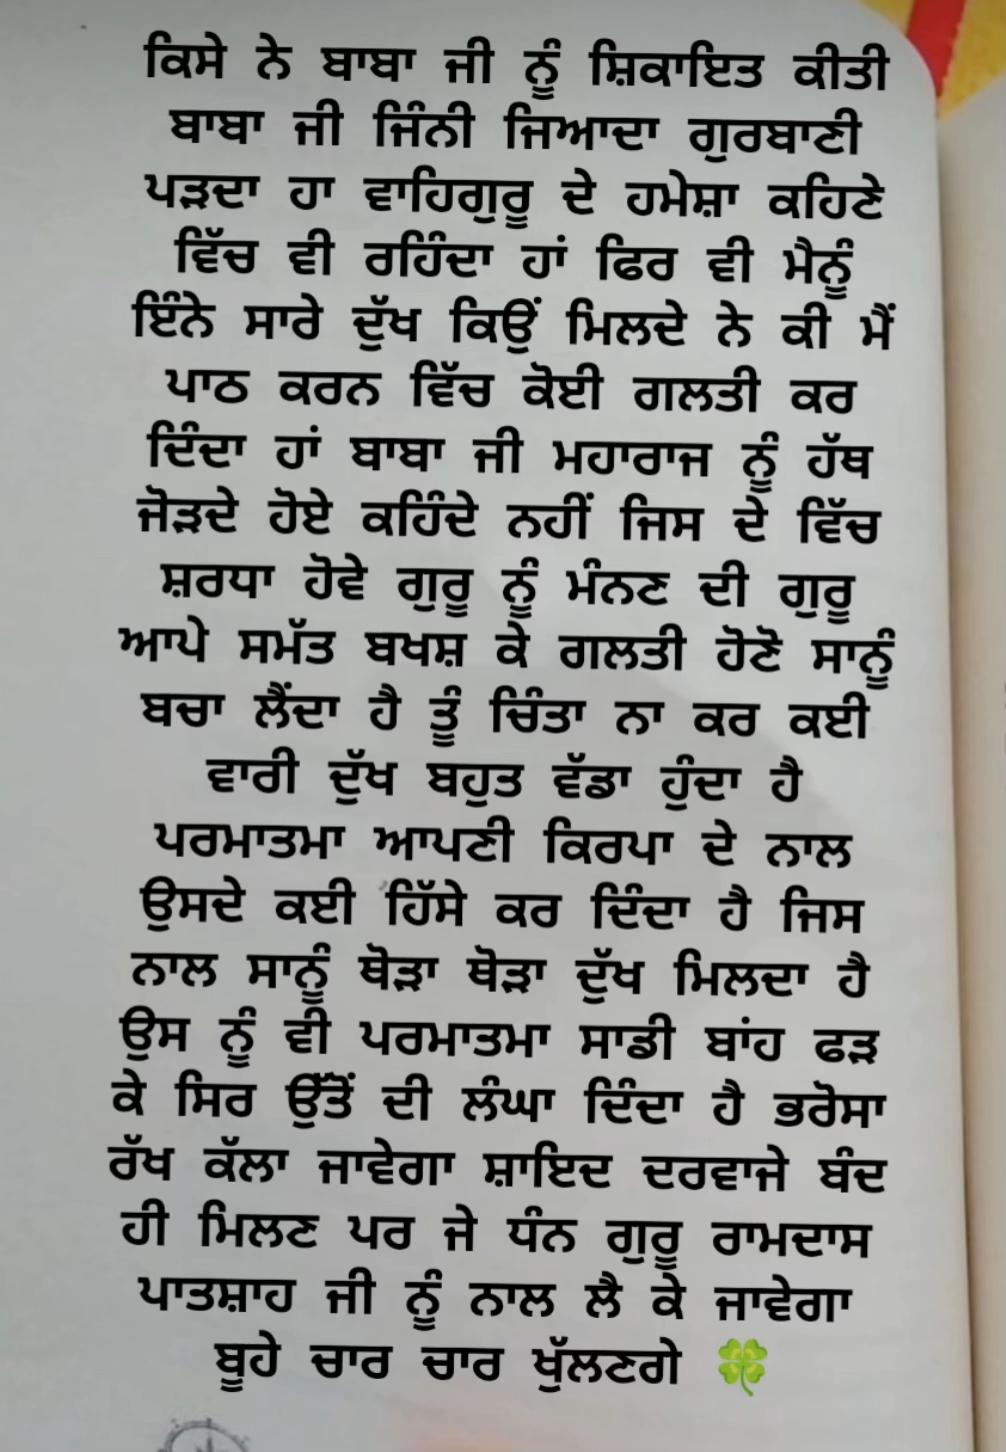 ਕਿਸੇ ਨੇ ਬਾਬਾ ਜੀ ਨੂੰ ਸ਼ਿਕਾਇਤ ਕੀਤੀ
ਬਾਬਾ ਜੀ ਜਿੰਨੀ ਜਿਆਦਾ ਗੁਰਬਾਣੀ
ਪੜਦਾ ਹਾ ਵਾਹਿਗੁਰੂ ਦੇ ਹਮੇਸ਼ਾ ਕਹਿਣੇ
ਵਿੱਚ ਵੀ ਰਹਿੰਦਾ ਹਾਂ ਫਿਰ ਵੀ ਮੈਨੂੰ
ਇੰਨੇ ਸਾਰੇ ਦੁੱਖ ਕਿਉਂ ਮਿਲਦੇ ਨੇ ਕੀ ਮੈਂ
ਪਾਠ ਕਰਨ ਵਿੱਚ ਕੋਈ ਗਲਤੀ ਕਰ
ਦਿੰਦਾ ਹਾਂ ਬਾਬਾ ਜੀ ਮਹਾਰਾਜ ਨੂੰ ਹੱਥ
ਜੋੜਦੇ ਹੋਏ ਕਹਿੰਦੇ ਨਹੀਂ ਜਿਸ ਦੇ ਵਿੱਚ
ਸ਼ਰਧਾ ਹੋਵੇ ਗੁਰੂ ਨੂੰ ਮੰਨਣ ਦੀ ਗੁਰੂ
ਆਪੇ ਸਮੱਤ ਬਖਸ਼ ਕੇ ਗਲਤੀ ਹੋਣੋ ਸਾਨੂੰ
ਬਚਾ ਲੈਂਦਾ ਹੈ ਤੂੰ ਚਿੰਤਾ ਨਾ ਕਰ ਕਈ
ਵਾਰੀ ਦੁੱਖ ਬਹੁਤ ਵੱਡਾ ਹੁੰਦਾ ਹੈ
ਪਰਮਾਤਮਾ ਆਪਣੀ ਕਿਰਪਾ ਦੇ ਨਾਲ
ਉਸਦੇ ਕਈ ਹਿੱਸੇ ਕਰ ਦਿੰਦਾ ਹੈ ਜਿਸ
ਨਾਲ ਸਾਨੂੰ ਥੋੜਾ ਥੋੜਾ ਦੁੱਖ ਮਿਲਦਾ ਹੈ
ਉਸ ਨੂੰ ਵੀ ਪਰਮਾਤਮਾ ਸਾਡੀ ਬਾਂਹ ਫੜ
ਕੇ ਸਿਰ ਉੱਤੋਂ ਦੀ ਲੰਘਾ ਦਿੰਦਾ ਹੈ ਭਰੋਸਾ
ਰੱਖ ਕੱਲਾ ਜਾਵੇਗਾ ਸ਼ਾਇਦ ਦਰਵਾਜੇ ਬੰਦ
ਹੀ ਮਿਲਣ ਪਰ ਜੇ ਧੰਨ ਗੁਰੂ ਰਾਮਦਾਸ
ਪਾਤਸ਼ਾਹ ਜੀ ਨੂੰ ਨਾਲ ਲੈ ਕੇ ਜਾਵੇਗਾ
ਬੂਹੇ ਚਾਰ ਚਾਰ ਖੁੱਲਣਗੇ 🍀